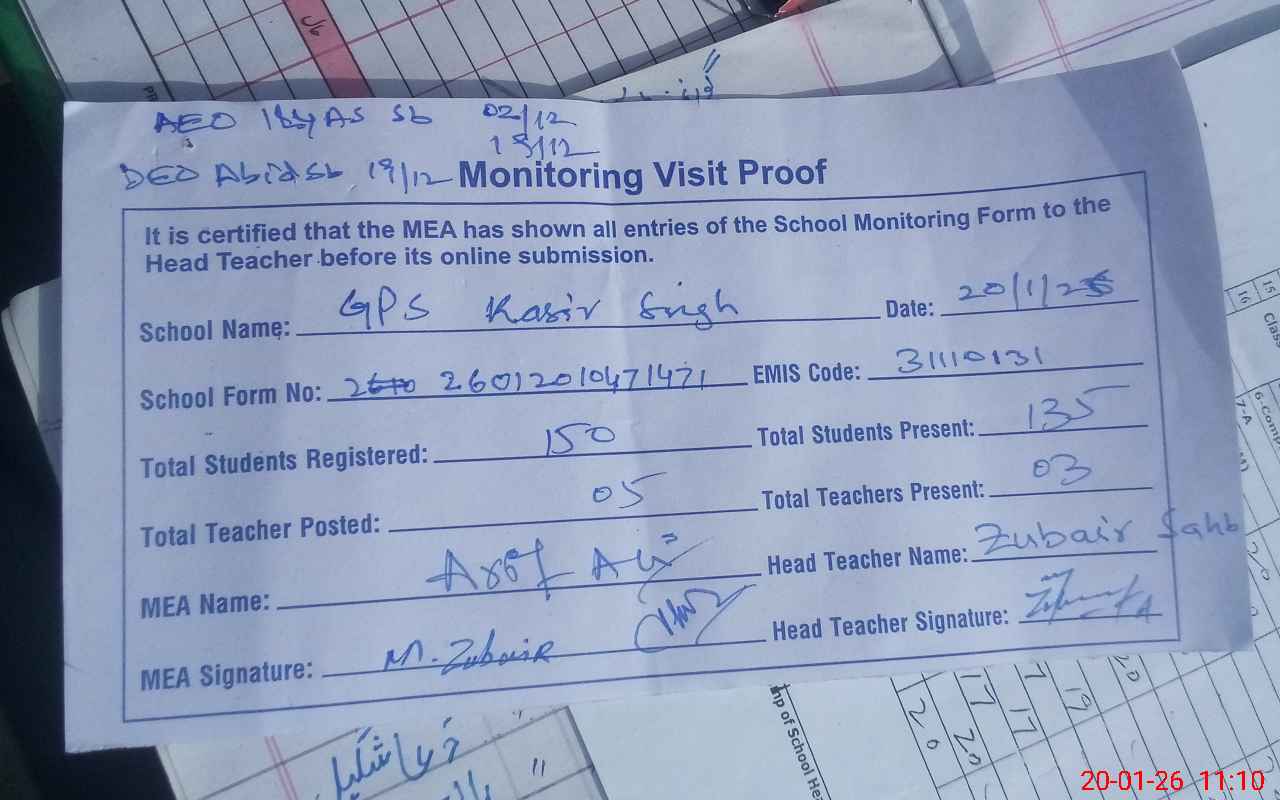 AEO Ilyas Sb 02/12
15/12
DEO Abid Sb 19/12 Monitoring Visit Proof
It is certified that the MEA has shown all entries of the School Monitoring Form to the
Head Teacher before its online submission.
School Name: GPS Kasir Singh Date: 20/1/26
School Form No: 26012010471471 EMIS Code: 31110131
Total Students Registered: 150 Total Students Present: 135
Total Teacher Posted: 05 Total Teachers Present: 03
MEA Name: Aref Ali Head Teacher Name: Zubair Sahb
MEA Signature: M. Zubair Head Teacher Signature:
15
16
Class
7-A
mp of School Hea
17 17 19 20
20 20
20-01-26 11:10